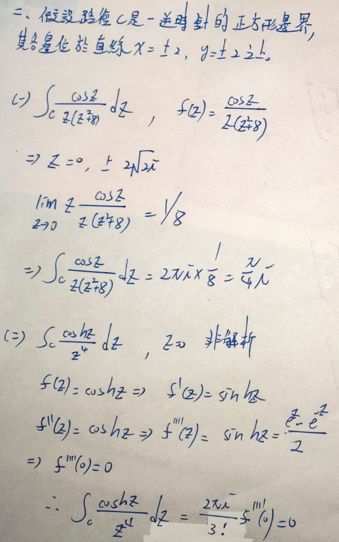 二、假設路徑C是一逆時針的正方形邊界,
其各邊位於直線 x=±2, y=±2之上。
(一) ∫c cosz/z(z²+8) dz , f(z)= cosz/z(z²+8)
⇒ z=0, ± 2√2i
lim z→0 z cosz/z(z²+8) = 1/8
⇒ ∫c cosz/z(z²+8) dz = 2πi × 1/8 = π/4 i
(二) ∫c coshz/z⁴ dz , z=0 非解析
f(z)= coshz ⇒ f'(z)= sinhz
f''(z)= coshz ⇒ f'''(z)= sinhz = e^z - e^-z / 2
⇒ f'''(0)=0
∴ ∫c coshz/z⁴ dz = 2πi/3! f'''(0)=0